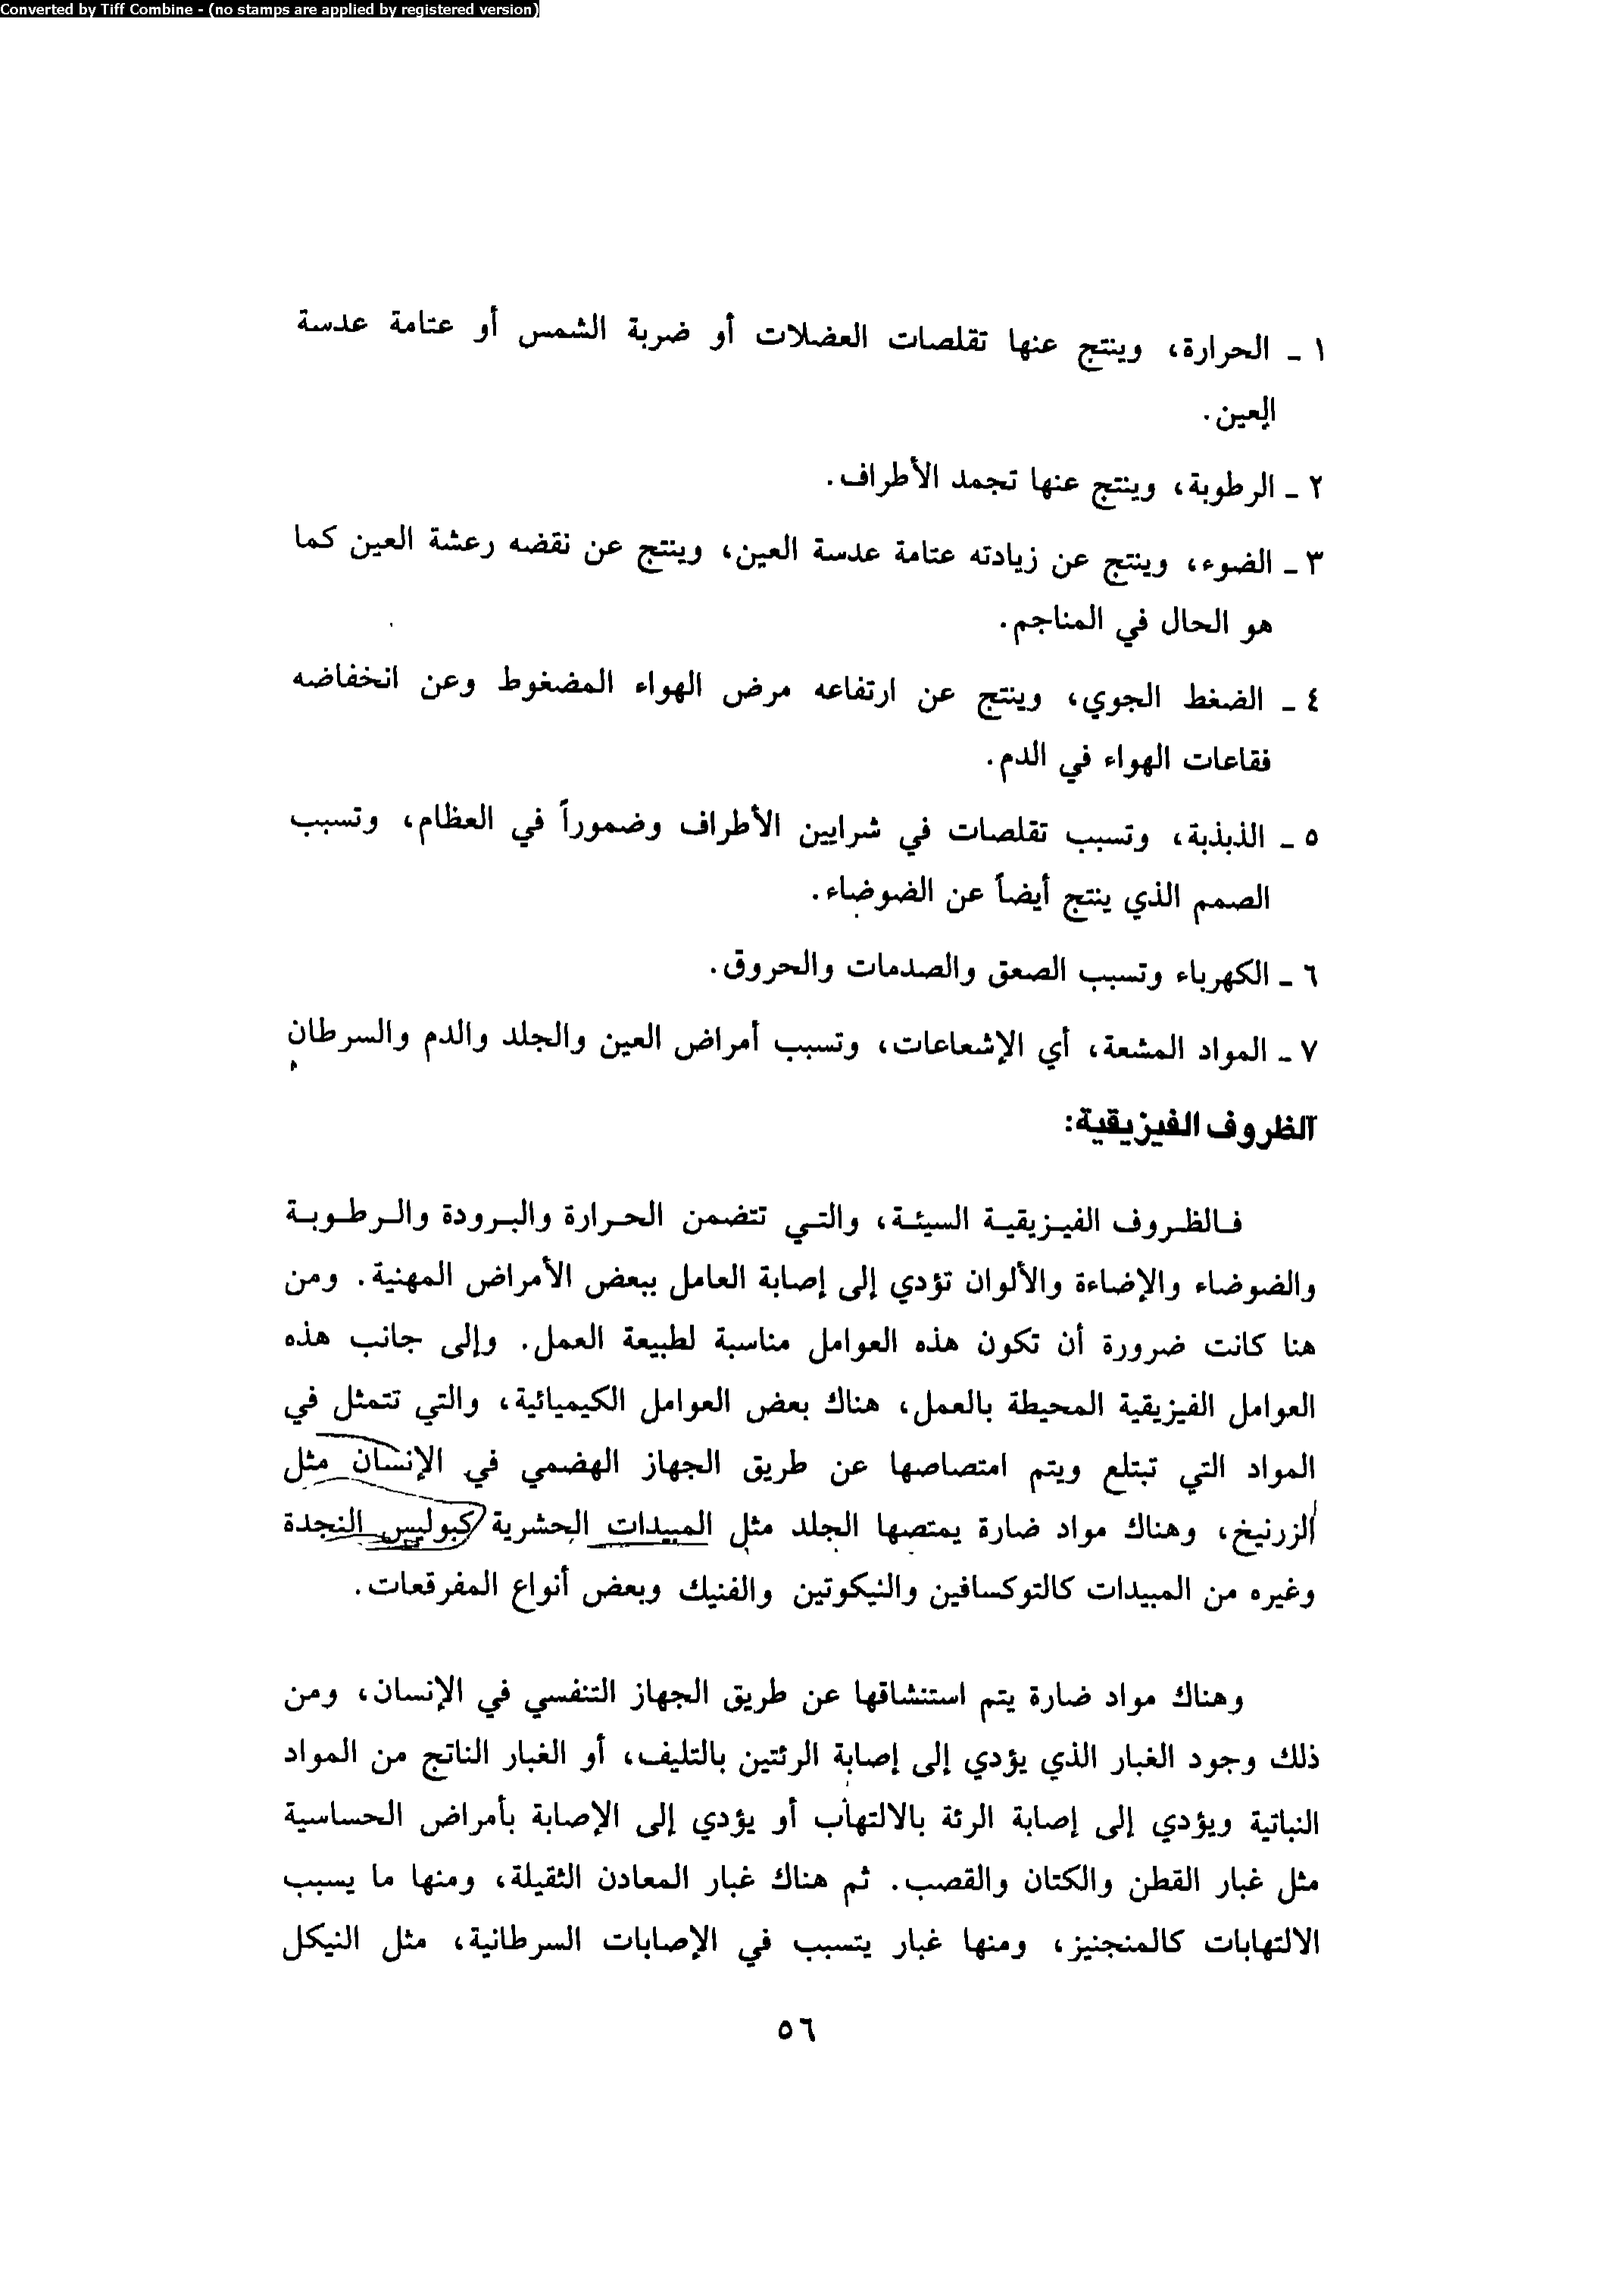 Converted by Tiff Combine - (no stamps are applied by registered version)
١ ـ الحرارة، وينتج عنها تقلصات العضلات أو ضربة الشمس أو عتامة عدسة
العين.
٢ ـ الرطوبة، وينتج عنها تجمد الأطراف.
٣ ـ الضوء، وينتج عن زيادته عتامة عدسة العين، وينتج عن نقضه رعشة العين كما
هو الحال في المناجم.
٤ ـ الضغط الجوي، وينتج عن ارتفاعه مرض الهواء المضغوط وعن انخفاضه
فقاعات الهواء في الدم.
٥ ـ الذبذبة، وتسبب تقلصات في شرايين الأطراف وضموراً في العظام، وتسبب
الصمم الذي ينتج أيضاً عن الضوضاء.
٦ ـ الكهرباء وتسبب الصعق والصدمات والحروق.
٧ ـ المواد المشعة، أي الإشعاعات، وتسبب أمراض العين والجلد والدم والسرطان
الظروف الفيزيقية:
فالظروف الفيزيقية السيئة، والتي تتضمن الحرارة والبرودة والرطوبة
والضوضاء والإضاءة والألوان تؤدي إلى إصابة العامل ببعض الأمراض المهنية. ومن
هنا كانت ضرورة أن تكون هذه العوامل مناسبة لطبيعة العمل. وإلى جانب هذه
العوامل الفيزيقية المحيطة بالعمل، هناك بعض العوامل الكيميائية، والتي تتمثل في
المواد التي تبتلع ويتم امتصاصها عن طريق الجهاز الهضمي في الإنسان مثل
الزرنيخ، وهناك مواد ضارة يمتصها الجلد مثل المبيدات الحشرية كبوليس النجدة
وغيره من المبيدات كالتوكسافين والنيكوتين والفنيك وبعض أنواع المفرقعات.
وهناك مواد ضارة يتم استنشاقها عن طريق الجهاز التنفسي في الإنسان، ومن
ذلك وجود الغبار الذي يؤدي إلى إصابة الرئتين بالتليف، أو الغبار الناتج من المواد
النباتية ويؤدي إلى إصابة الرئة بالالتهاب أو يؤدي إلى الإصابة بأمراض الحساسية
مثل غبار القطن والكتان والقصب. ثم هناك غبار المعادن الثقيلة، ومنها ما يسبب
الالتهابات كالمنجنيز، ومنها غبار يتسبب في الإصابات السرطانية، مثل النيكل
٥٦